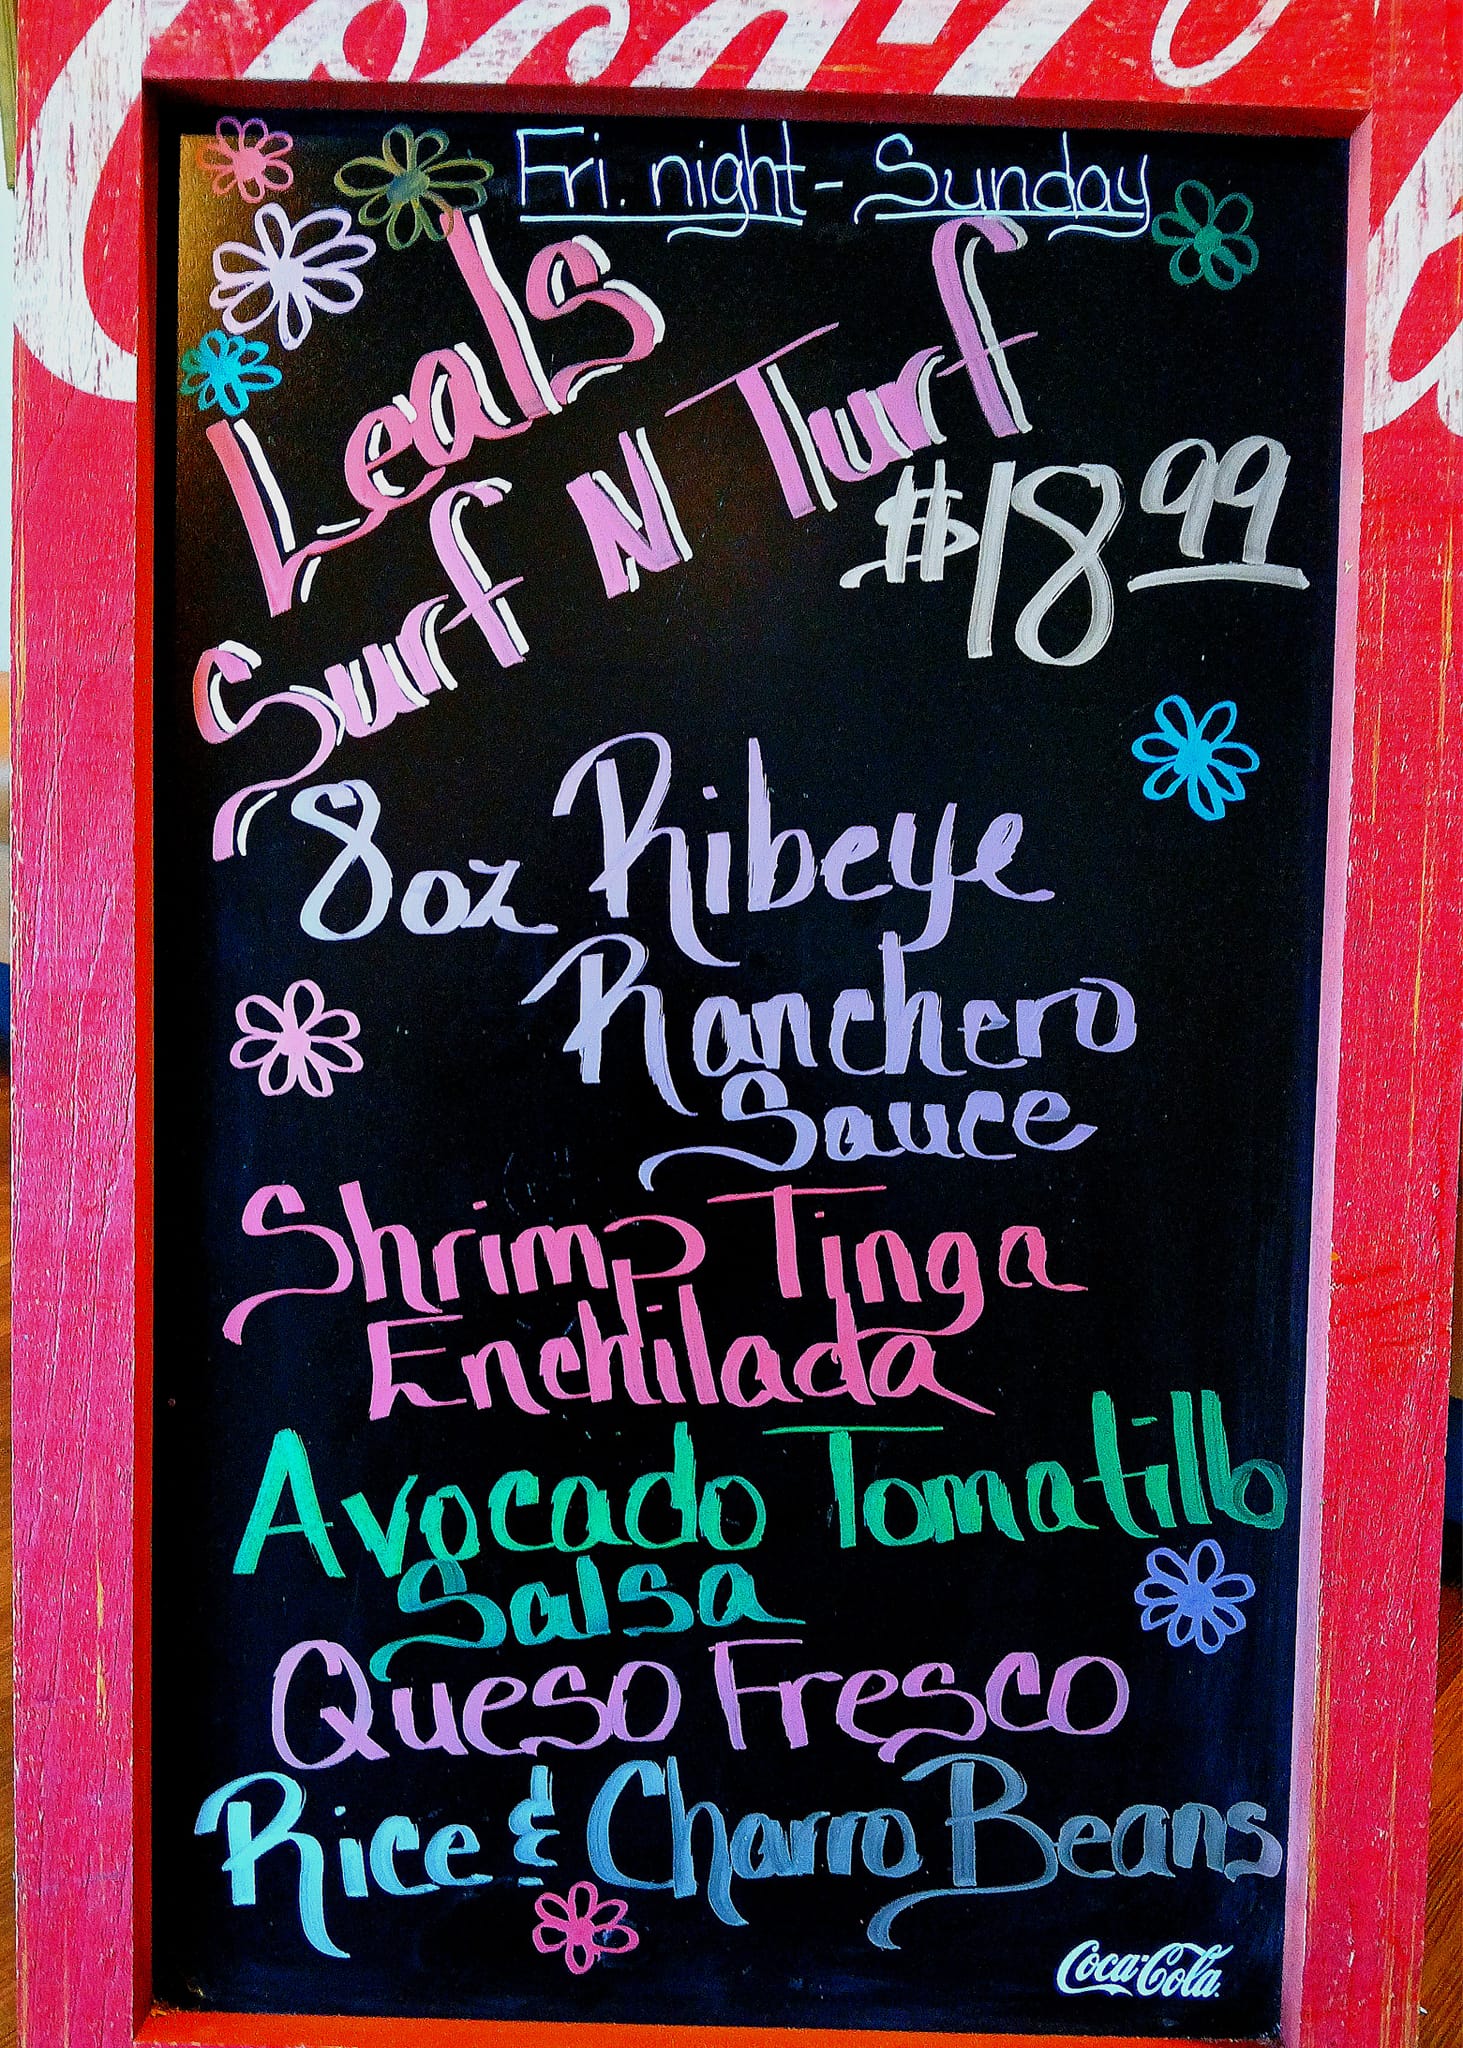 Coca-Cola
Fri. night - Sunday
Leals
Surf N Turf
$18.99
8oz Ribeye
Ranchero
Sauce
Shrimp Tinga
Enchilada
Avocado Tomatillo
Salsa
Queso Fresco
Rice & Charro Beans
Coca-Cola